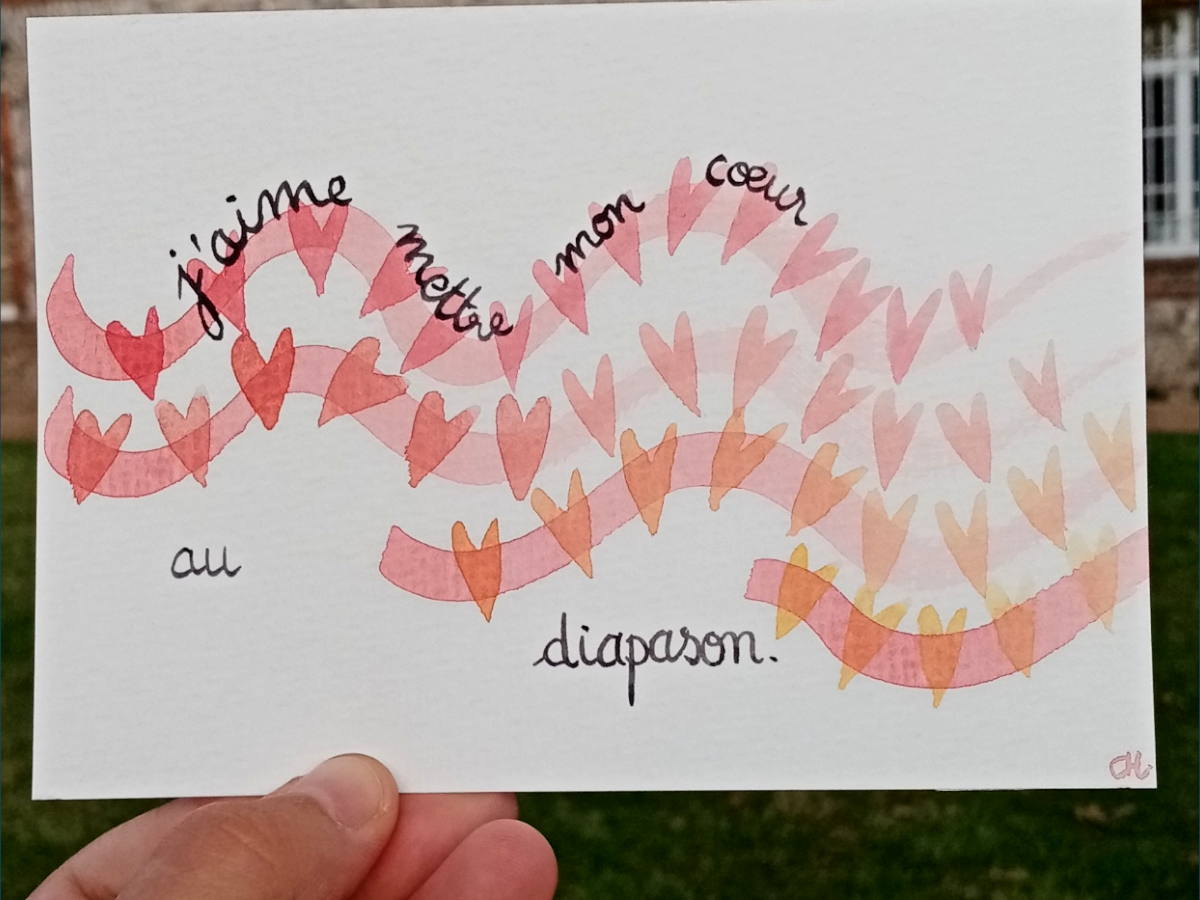 j'aime mettre mon coeur
au
diapason.
CH